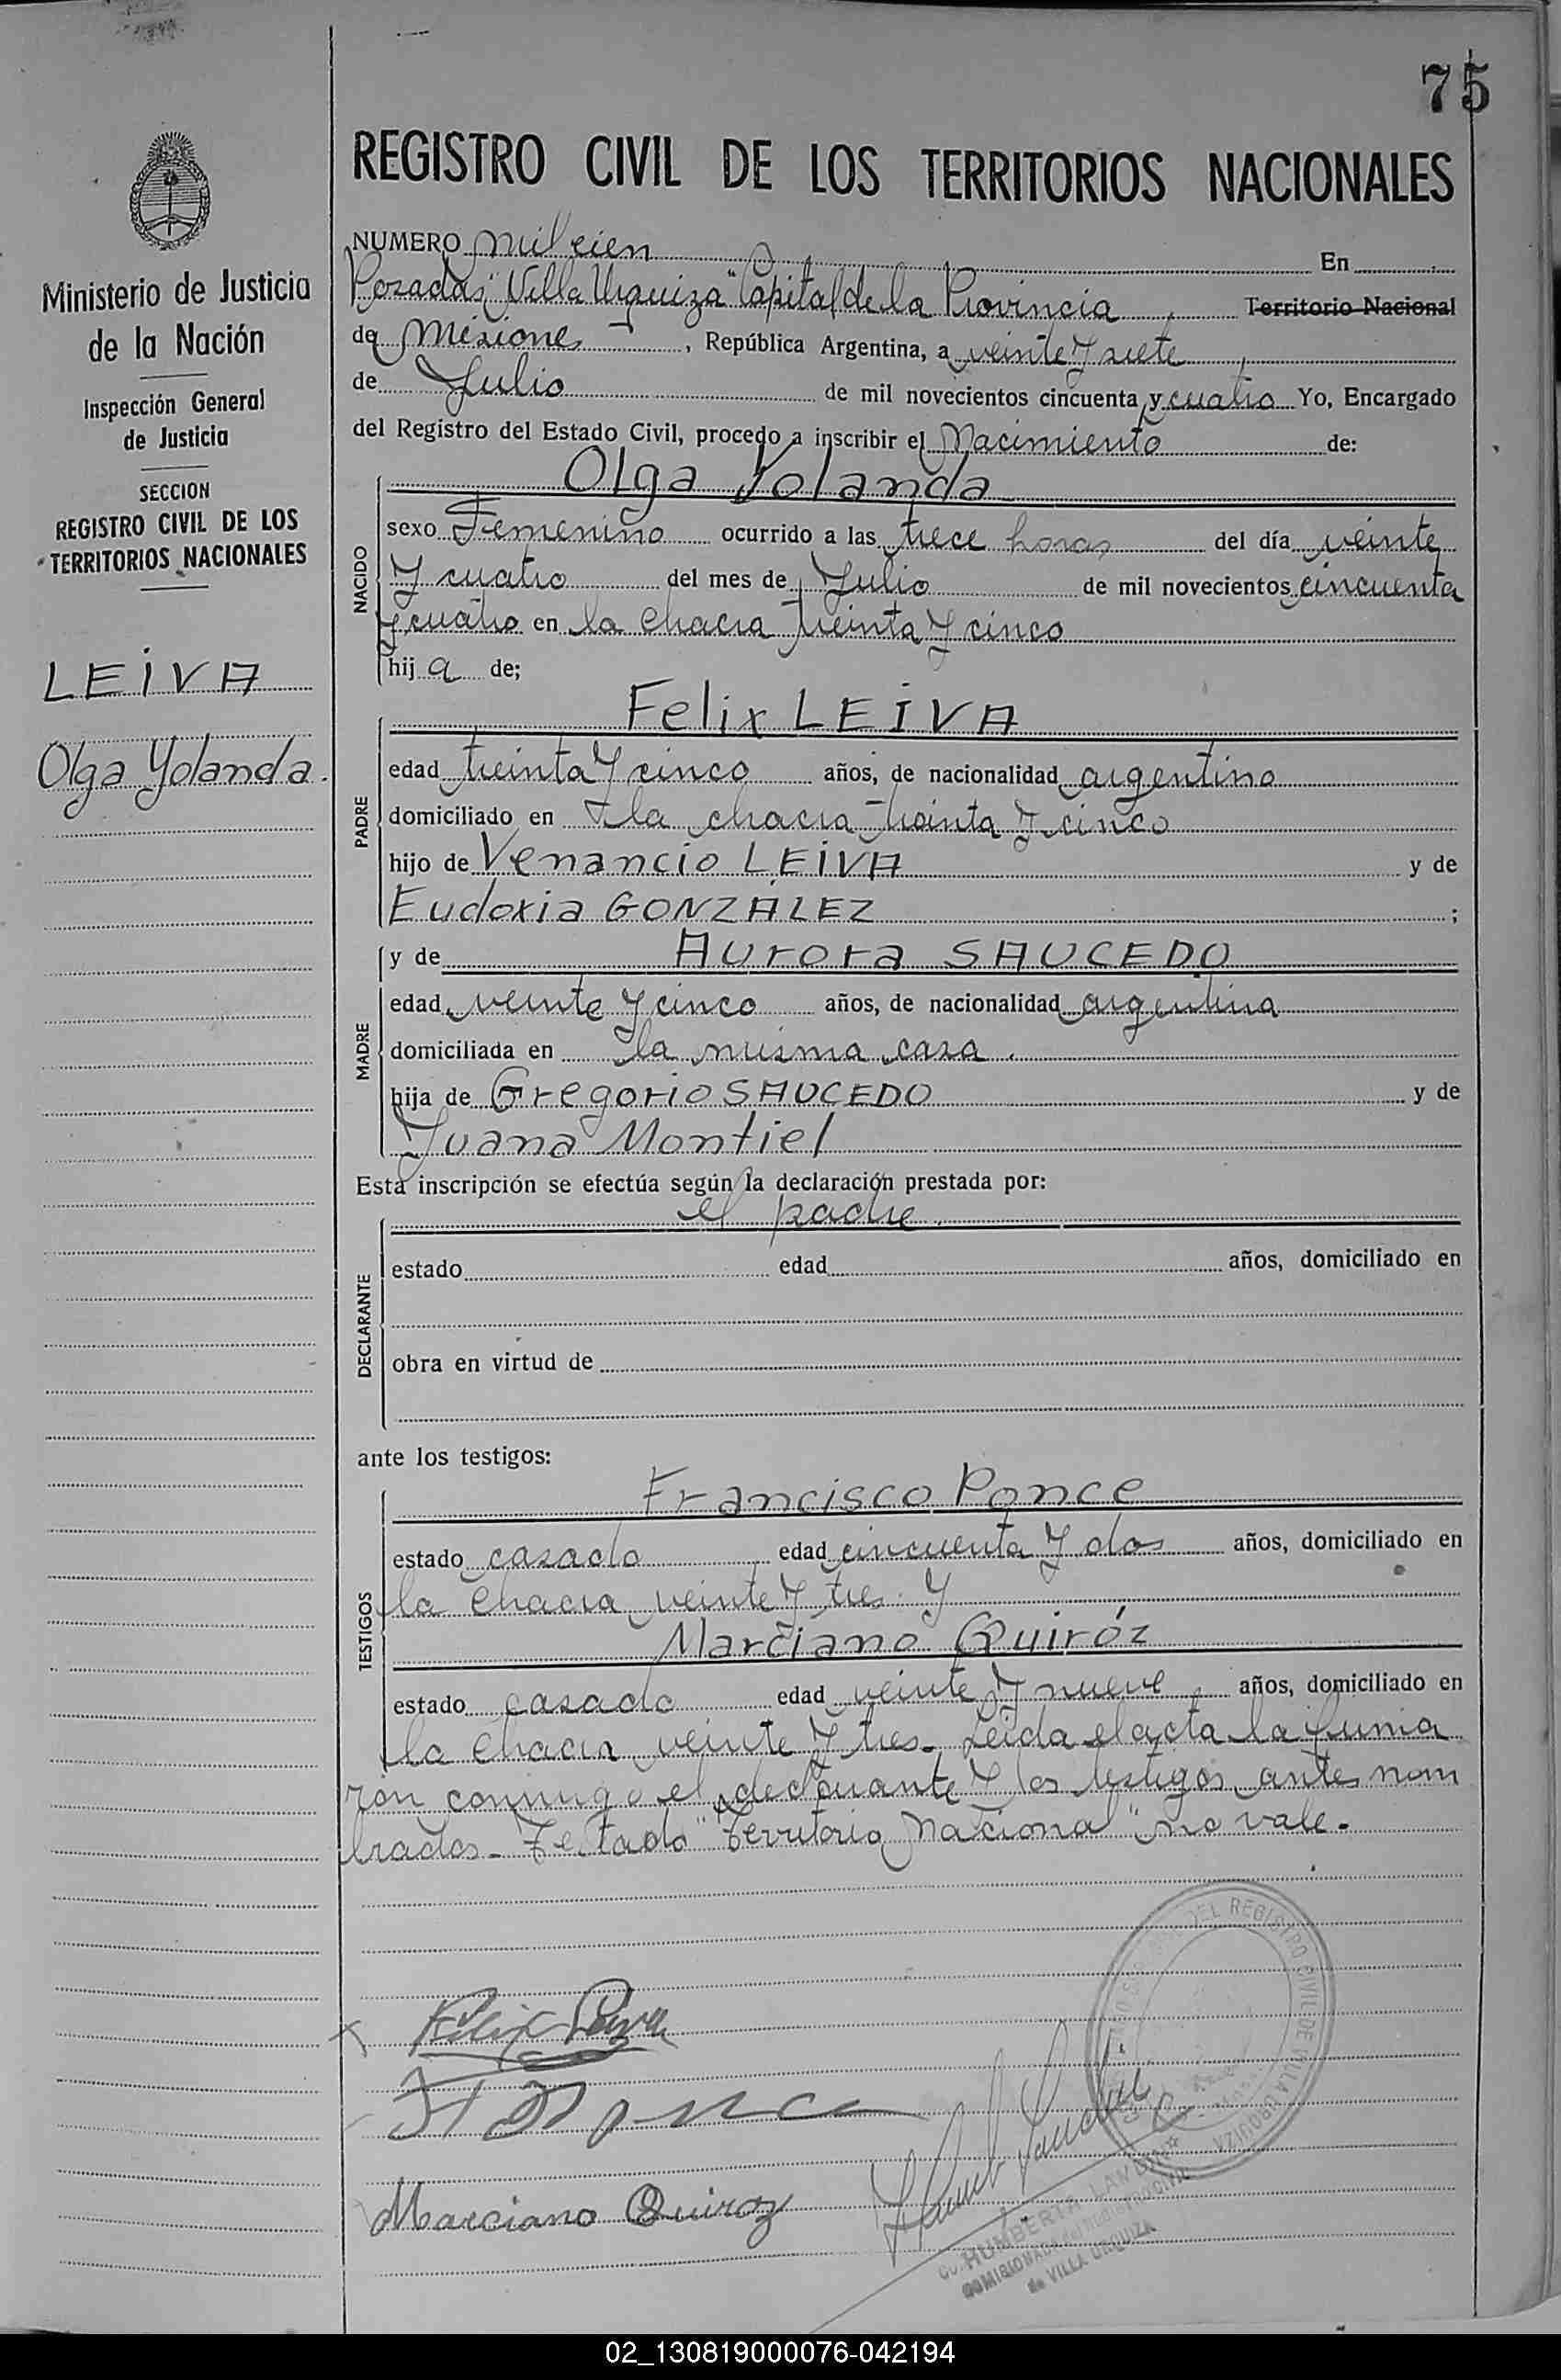 75
REGISTRO CIVIL DE LOS TERRITORIOS NACIONALES
Ministerio de Justicia
de la Nación
Inspección General
de Justicia
SECCION
REGISTRO CIVIL DE LOS
TERRITORIOS NACIONALES
LEIVA
Olga Yolanda.
NUMERO mil cien En
Posadas "Villa Urquiza" Capital de la Provincia Territorio Nacional
de Misiones, República Argentina, a veinte y siete
de Julio de mil novecientos cincuenta y cuatro Yo, Encargado
del Registro del Estado Civil, procedo a inscribir el Nacimiento de:
Olga Yolanda
NACIDO
sexo Femenino ocurrido a las trece horas del día veinte
y cuatro del mes de Julio de mil novecientos cincuenta
y cuatro en la chacra treinta y cinco
hij a de;
Felix LEIVA
PADRE
edad treinta y cinco años, de nacionalidad argentino
domiciliado en la chacra treinta y cinco
hijo de Venancio LEIVA y de
Eudoxia GONZALEZ ;
y de Aurora SAUCEDO
MADRE
edad veinte y cinco años, de nacionalidad argentina
domiciliada en la misma casa.
hija de Gregorio SAUCEDO y de
Juana Montiel
Esta inscripción se efectúa según la declaración prestada por:
el padre.
DECLARANTE
estado edad años, domiciliado en
obra en virtud de
ante los testigos:
Francisco Ponce
TESTIGOS
estado casado edad cincuenta y dos años, domiciliado en
la chacra veinte y tres y
Marciano Quiróz
estado casado edad veinte y nueve años, domiciliado en
la chacra veinte y tres. Leida el acta la firma
ron conmigo el declarante y los testigos antes nom
brados. Testado "Territorio Nacional" no vale.
Felix Leiva
Marciano Quiroz
DEL REGISTRO CIVIL DE VILLA URQUIZA
HUMBERTA
de VILLA URQUIZA
02_130819000076-042194